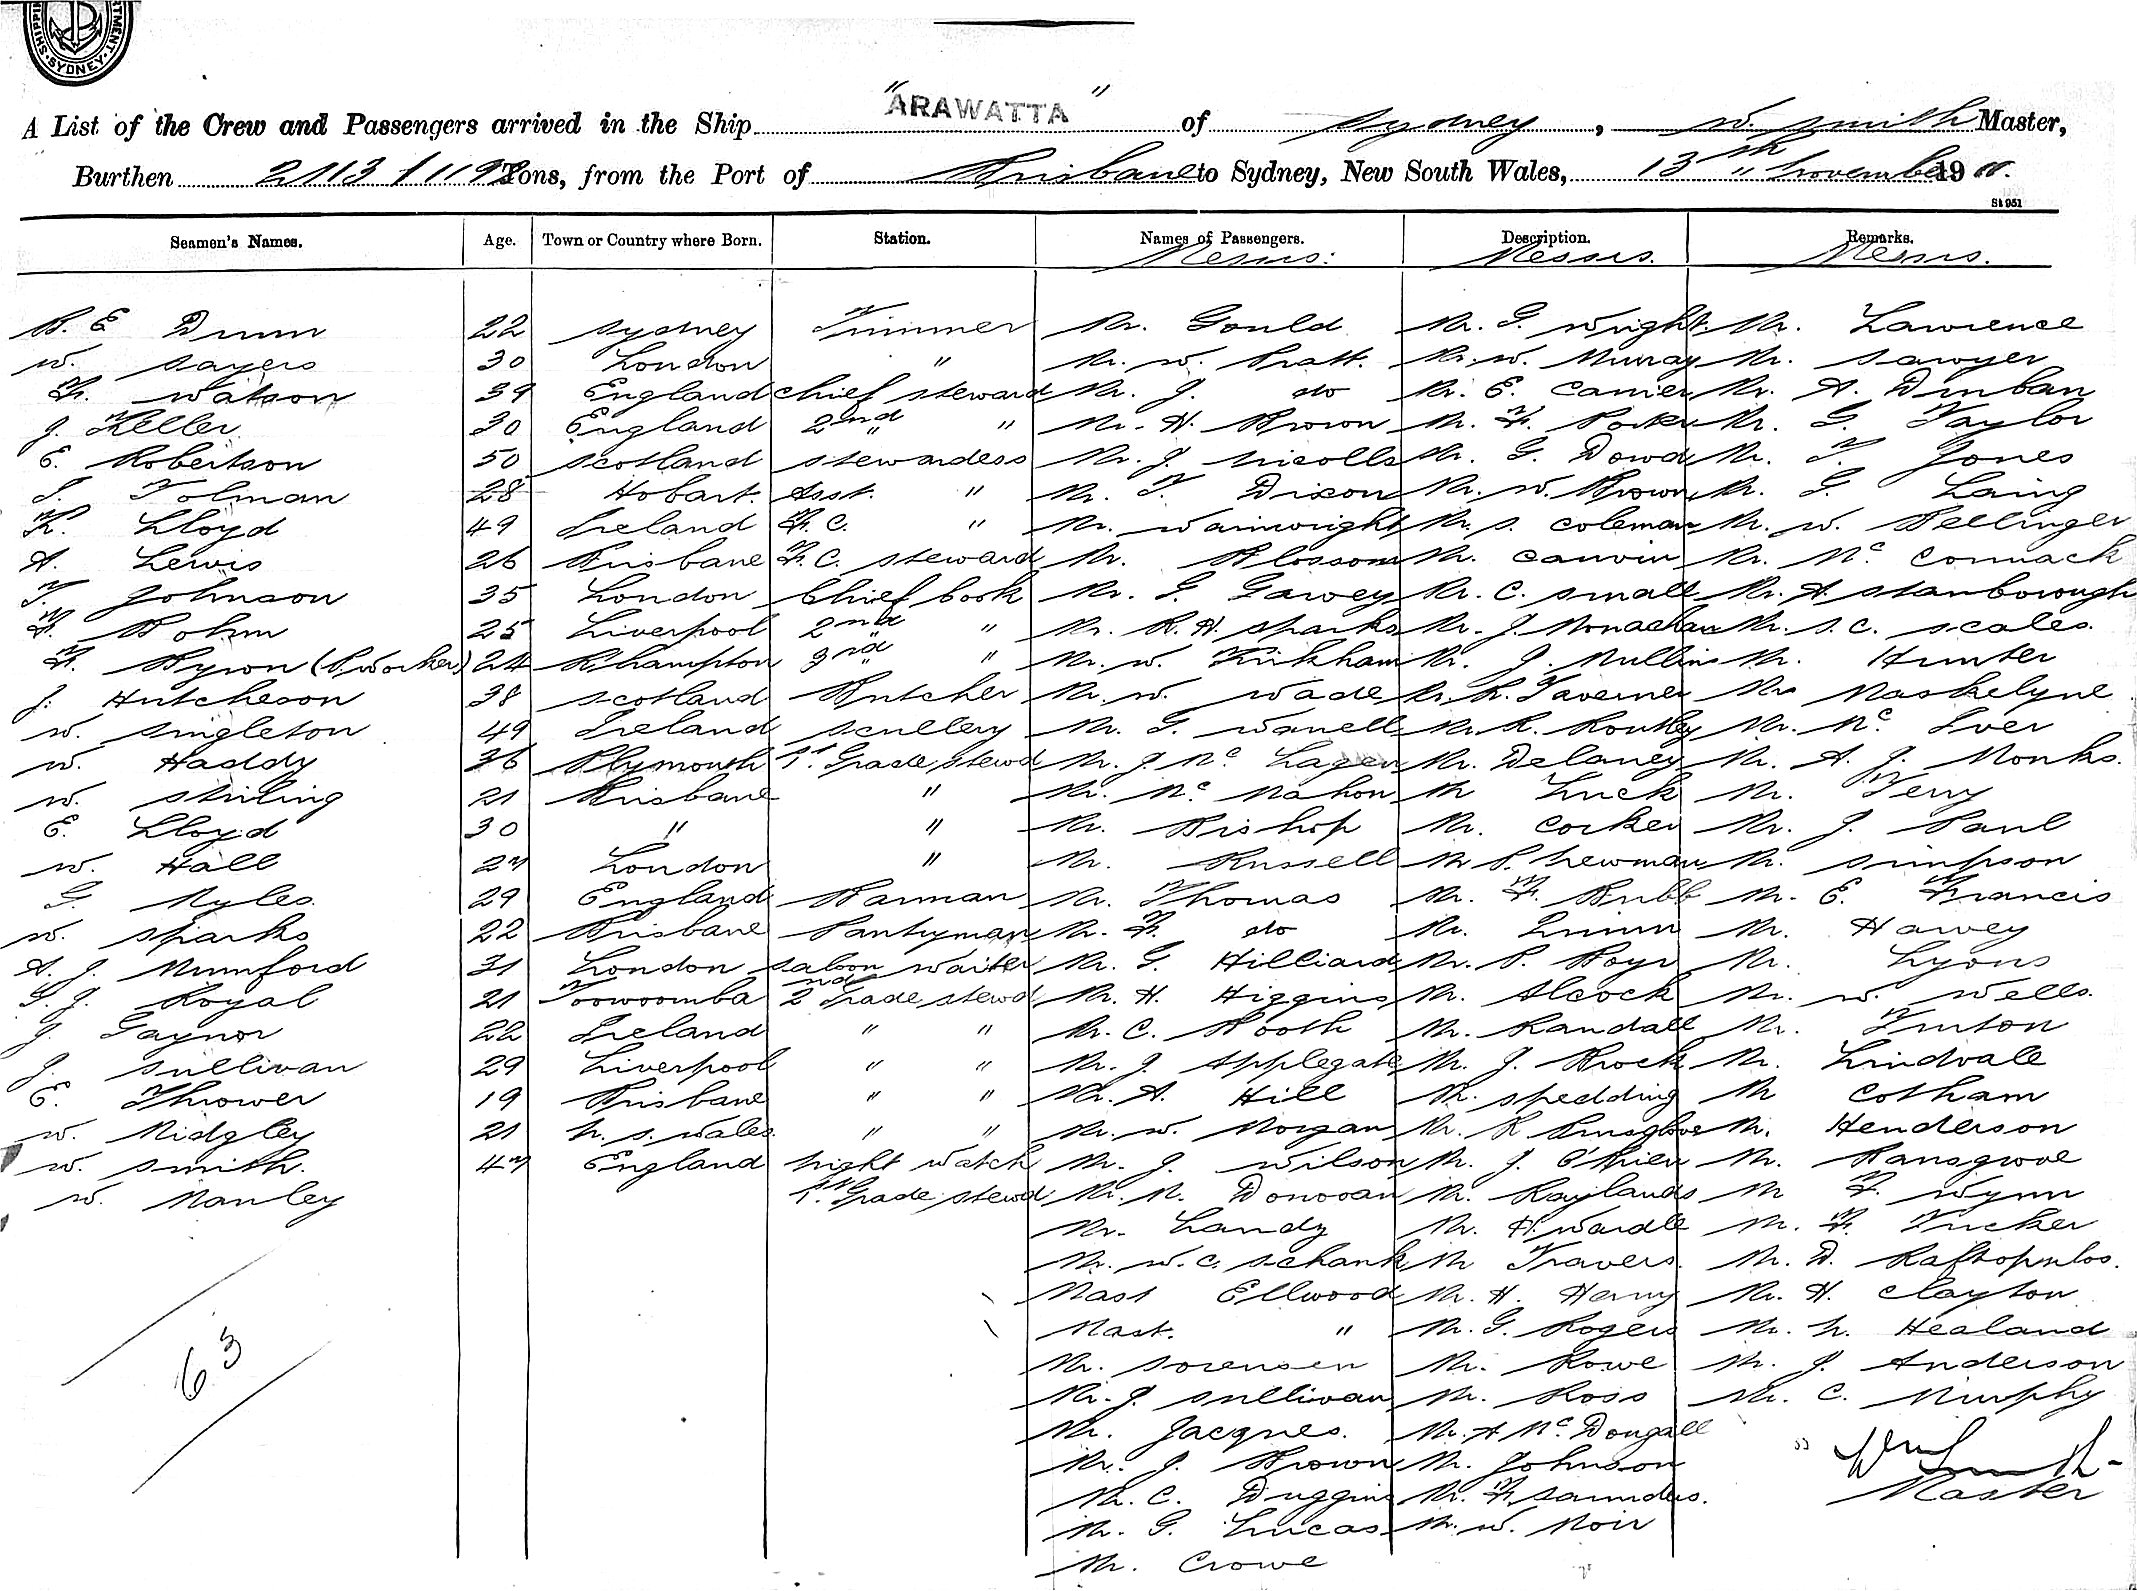 SHIPPING DEPARTMENT SYDNEY
A List of the Crew and Passengers arrived in the Ship "ARAWATTA" of Sydney, W. Smith Master,
Burthen 2113/1192 Tons, from the Port of Brisbane to Sydney, New South Wales, 13th November 19
St 951
Seamen's Names. Age. Town or Country where Born. Station. Names of Passengers. Description. Remarks.
Messrs: Messrs. Messrs.
B. E. Dunn 22 Sydney Trimmer Mr. Gould Mr. G. Wright Mr. Lawrence
W. Sayers 30 London " Mr. W. Pratt. Mr. W. Murray Mr. Sawyer
F. Watson 39 England Chief Steward Mr. J. do Mr. E. Carrier Mr. A. Dunban
J. Keller 30 England 2nd " " Mr. H. Brown Mr. F. Mr. G. Taylor
E. Robertson 50 Scotland Stewardess Mr. J. Nicolls Mr. G. Dowd Mr. T. Jones
S. Tolman 28 Hobart. Asst. " Mr. T. Dixon Mr. W. Brown Mr. G. Laing
K. Lloyd 49 Ireland F. C. " Mr. Wainwright Mr. S. Coleman Mr. W. Bellinger
A. Lewis 26 Brisbane F. C. Steward Mr. Blossom Mr. Mr. Mc Cormack
T. Johnson 35 London Chief Cook Mr. G. Garvey Mr. C. Small Mr. A. Stanborough
F. Bohm 25 Liverpool 2nd " Mr. R. H. Sparks Mr. J. Monaghan Mr. S. C. Scales.
F. Byron (P. Worker) 24 R.hampton 3rd " " Mr. W. Kirkham Mr. J. Mullins Mr. Hunter
J. Hutcheson 38 Scotland Butcher Mr. W. Wade Mr. L. Taverner Mr Maskelyne
W. Singleton 49 Ireland Scullery Mr. G. Mr. R. Mr. Mc Iver
W. Haddy 36 Plymouth 1st Grade Stewd Mr. J. Mc Mr. Delaney Mr. A. J. Monks.
W. Stirling 21 Brisbane " Mr. Mc Mahon Mr Luck Mr. Terry
E. Lloyd 30 " " Mr. Bishop Mr. Corker Mr. J. Paul
W. Hall 27 London " Mr. Russell Mr P. Newman Mr. Simpson
G. Myles 29 England Barman Mr. Thomas Mr. F. Bubb Mr. E. Francis
W. Sparks 22 Brisbane Pantryman Mr. F. do Mr. Quinn Mr. Harvey
A. J. Mumford 31 London Saloon Waiter Mr. G. Hilliard Mr. P. Mr. Lyons
G. J. Royal 21 Toowoomba 2nd Grade Stewd Mr. H. Higgins Mr. Alcock Mr. W. Wells.
J. Gaynor 22 Ireland " " Mr. C. Booth Mr. Randall Mr.
J. Sullivan 29 Liverpool " " Mr. J. Applegate Mr. J. Brock Mr. Lindvall
E. Thrower 19 Brisbane " " Mr. A. Hill Mr. Spedding Mr Cotham
W. Midgley 21 N. S. Wales. " " Mr. W. Morgan Mr. R. Mr. Henderson
W. Smith. 47 England Night Watch Mr. J. Wilson Mr. J. O'Brien Mr. Hansgrove
W. Manley 1st Grade Stewd Mr. M. Donovan Mr. Raylands Mr F. Wynn
Mr. Landy Mr. H. Wardle Mr. F. Tucker
Mr. W. C. Schank Mr Travers. Mr. D. Raftopulos.
Mast Ellwood Mr. H. Henry Mr. H. Clayton
Mast. " Mr. G. Rogers Mr. N. Healand
Mr. Sorensen Mr. Rowe Mr. J. Anderson
Mr. J. Sullivan Mr. Ross Mr. C. Murphy
Mr. Jacques. Mr. A Mc Dougall
Mr. J. Brown Mr. Johnson
Mr. C. Duggins Mr. F. Saunders.
Mr. G. Lucas Mr. W. Moir
Mr. Crowe
63
Wm Smith
Master